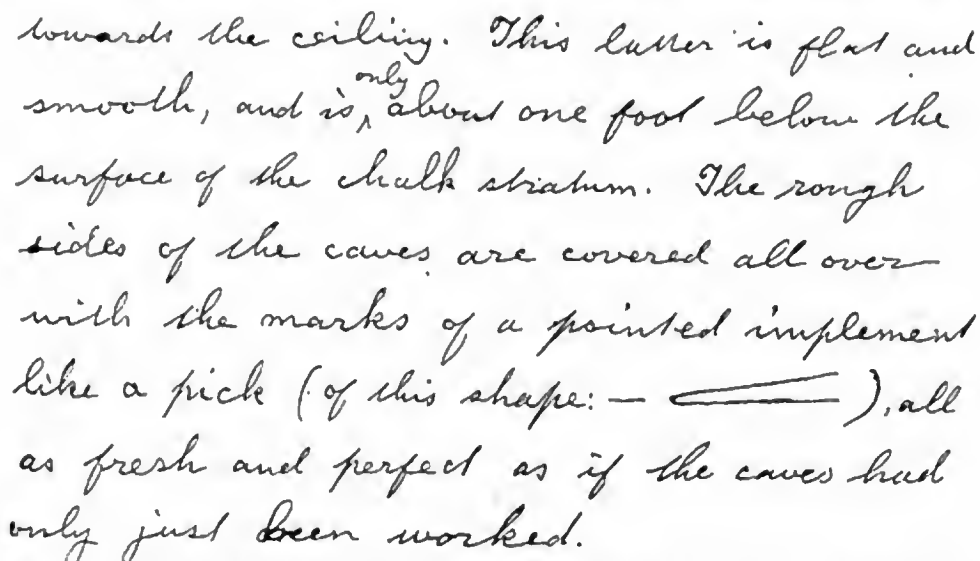 towards the ceiling. This latter is flat and
smooth, and is only about one foot below the
surface of the chalk stratum. The rough
sides of the caves are covered all over
with the marks of a pointed implement
like a pick (of this shape: — ), all
as fresh and perfect as if the caves had
only just been worked.